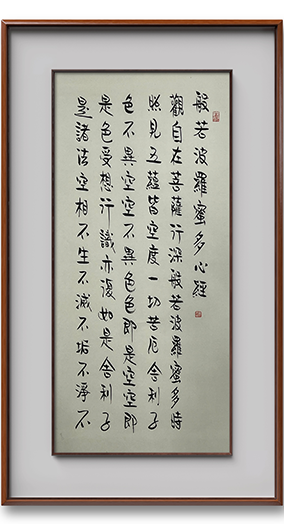 般若波羅蜜多心經
觀自在菩薩行深般若波羅蜜多時
照見五蘊皆空度一切苦厄舍利子
色不異空空不異色色即是空空即
是色受想行識亦復如是舍利子
是諸法空相不生不滅不垢不淨不